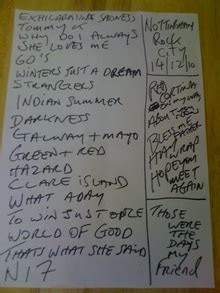 EXHILARATING SADNESS
TOMMY K
WHY DO I ALWAYS
SHE LOVES ME
60'S
WINTERS JUST A DREAM
STRANGLERS
INDIAN SUMMER
DARKNESS
GALWAY + MAYO
GREEN + RED
HAZARD
CLARE ISLAND
WHAT A DAY
TO WIN JUST ONCE
WORLD OF GOOD
THATS WHAT SHE SAID
N17
NOTTINGHAM
ROCK
CITY
14/12/10
RED
CORTINA
ABOUT
BLESS
HAY WRAP
HOPE YOU
MEET
AGAIN
THOSE
WERE THE
DAYS
MY
FRIEND